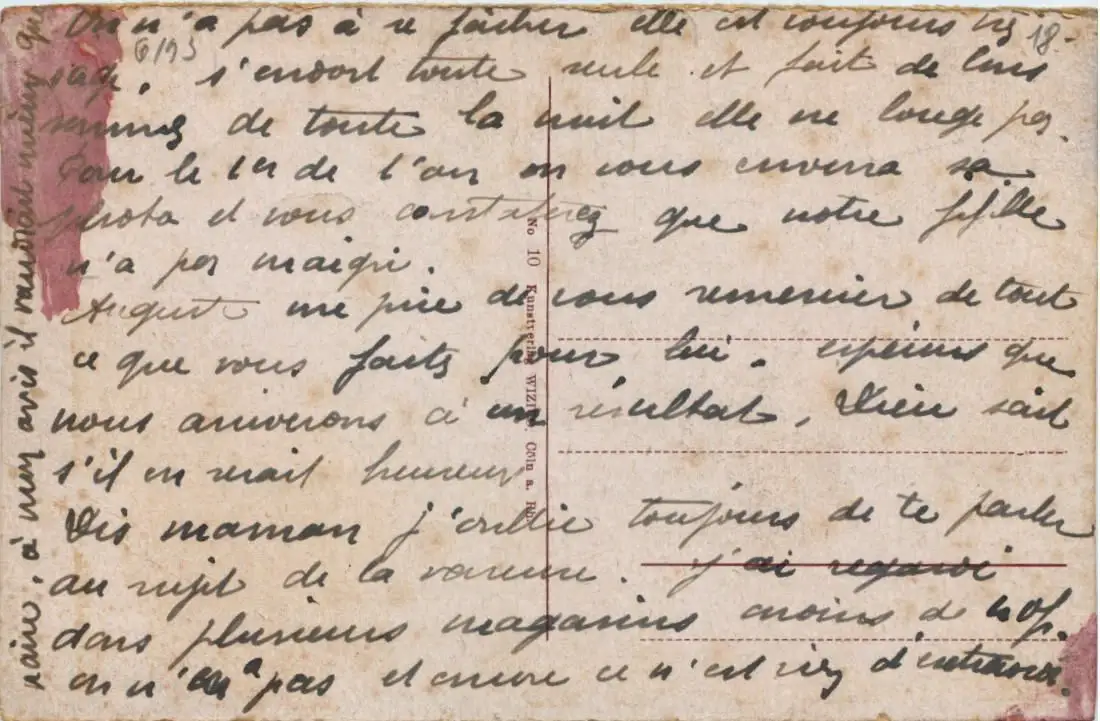 On n'a pas à se fâcher elle est toujours très
sage. s'endort toute seule et fait de bons
sommes de toute la nuit elle ne bouge pas.
Pour le 1er de l'an on vous enverra sa
photo et vous constaterez que notre fifille
n'a pas maigri.
August me prie de vous remercier de tout
ce que vous faites pour lui. espérons que
nous arriverons à un résultat, Dieu sait
s'il en serait heureux
Dis maman j'oublie toujours de te parler
au sujet de la vareuse. j'ai regardé
dans plusieurs magasins moins de 40f.
on n'en a pas et encore ce n'est rien d'
naire, à mon avis il vaudrait mieux que
6/193
18-
No 10 Kunstverlag Cöln a. Rh.